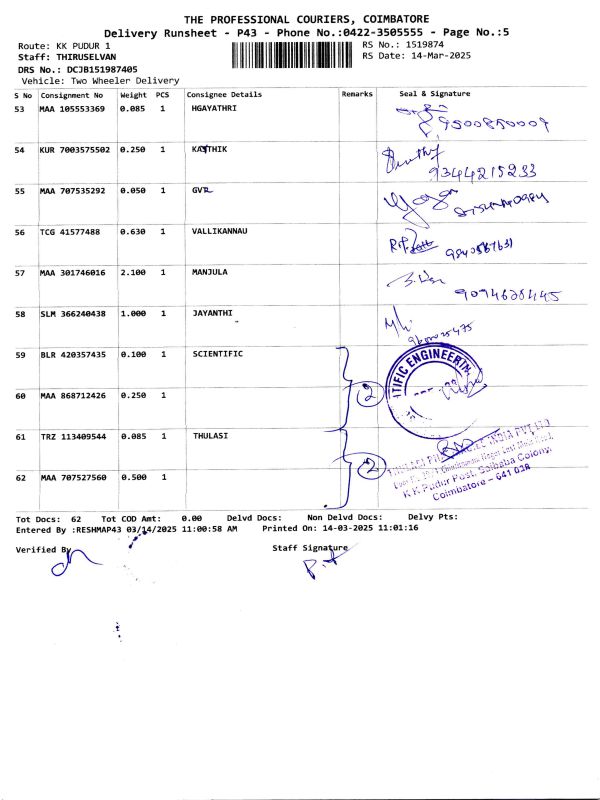 THE PROFESSIONAL COURIERS, COIMBATORE
Delivery Runsheet - P43 - Phone No.:0422-3505555 - Page No.:5
Route: KK PUDUR 1 RS No.: 1519874
Staff: THIRUSELVAN RS Date: 14-Mar-2025
DRS No.: DCJB151987405
Vehicle: Two Wheeler Delivery
S No Consignment No Weight PCS Consignee Details Remarks Seal & Signature
53 MAA 105553369 0.085 1 HGAYATHRI
9500850007
54 KUR 7003575502 0.250 1 KARTHIK
9344215233
55 MAA 707535292 0.050 1 GVR
56 TCG 41577488 0.630 1 VALLIKANNAU
57 MAA 301746016 2.100 1 MANJULA
58 SLM 366240438 1.000 1 JAYANTHI
59 BLR 420357435 0.100 1 SCIENTIFIC
TIFIC ENGINEERIN
60 MAA 868712426 0.250 1 2
61 TRZ 113409544 0.085 1 THULASI
INDIA PVT LTD
2
K K Pudur Post, Saibaba Colony,
62 MAA 707527560 0.500 1
Coimbatore - 641 038
Tot Docs: 62 Tot COD Amt: 0.00 Delvd Docs: Non Delvd Docs: Delvy Pts:
Entered By :RESHMAP43 03/14/2025 11:00:58 AM Printed On: 14-03-2025 11:01:16
Verified By Staff Signature